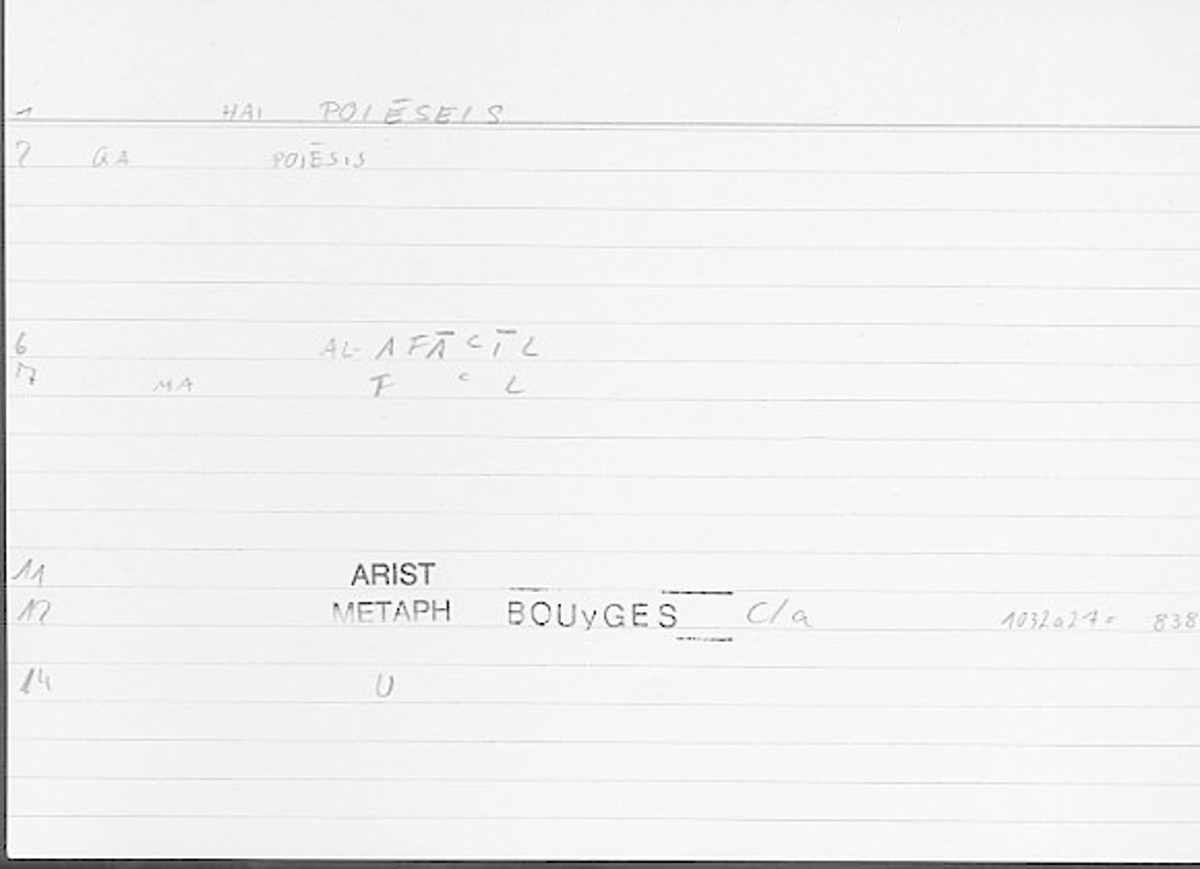 1 HAI POIĒSEIS
2 GA POIĒSIS
6 AL- AFĀ ͨ ĪL
7 MA F ͨ L
11 ARIST
12 METAPH BOUyGES C/a 1032a27= 838
14 U